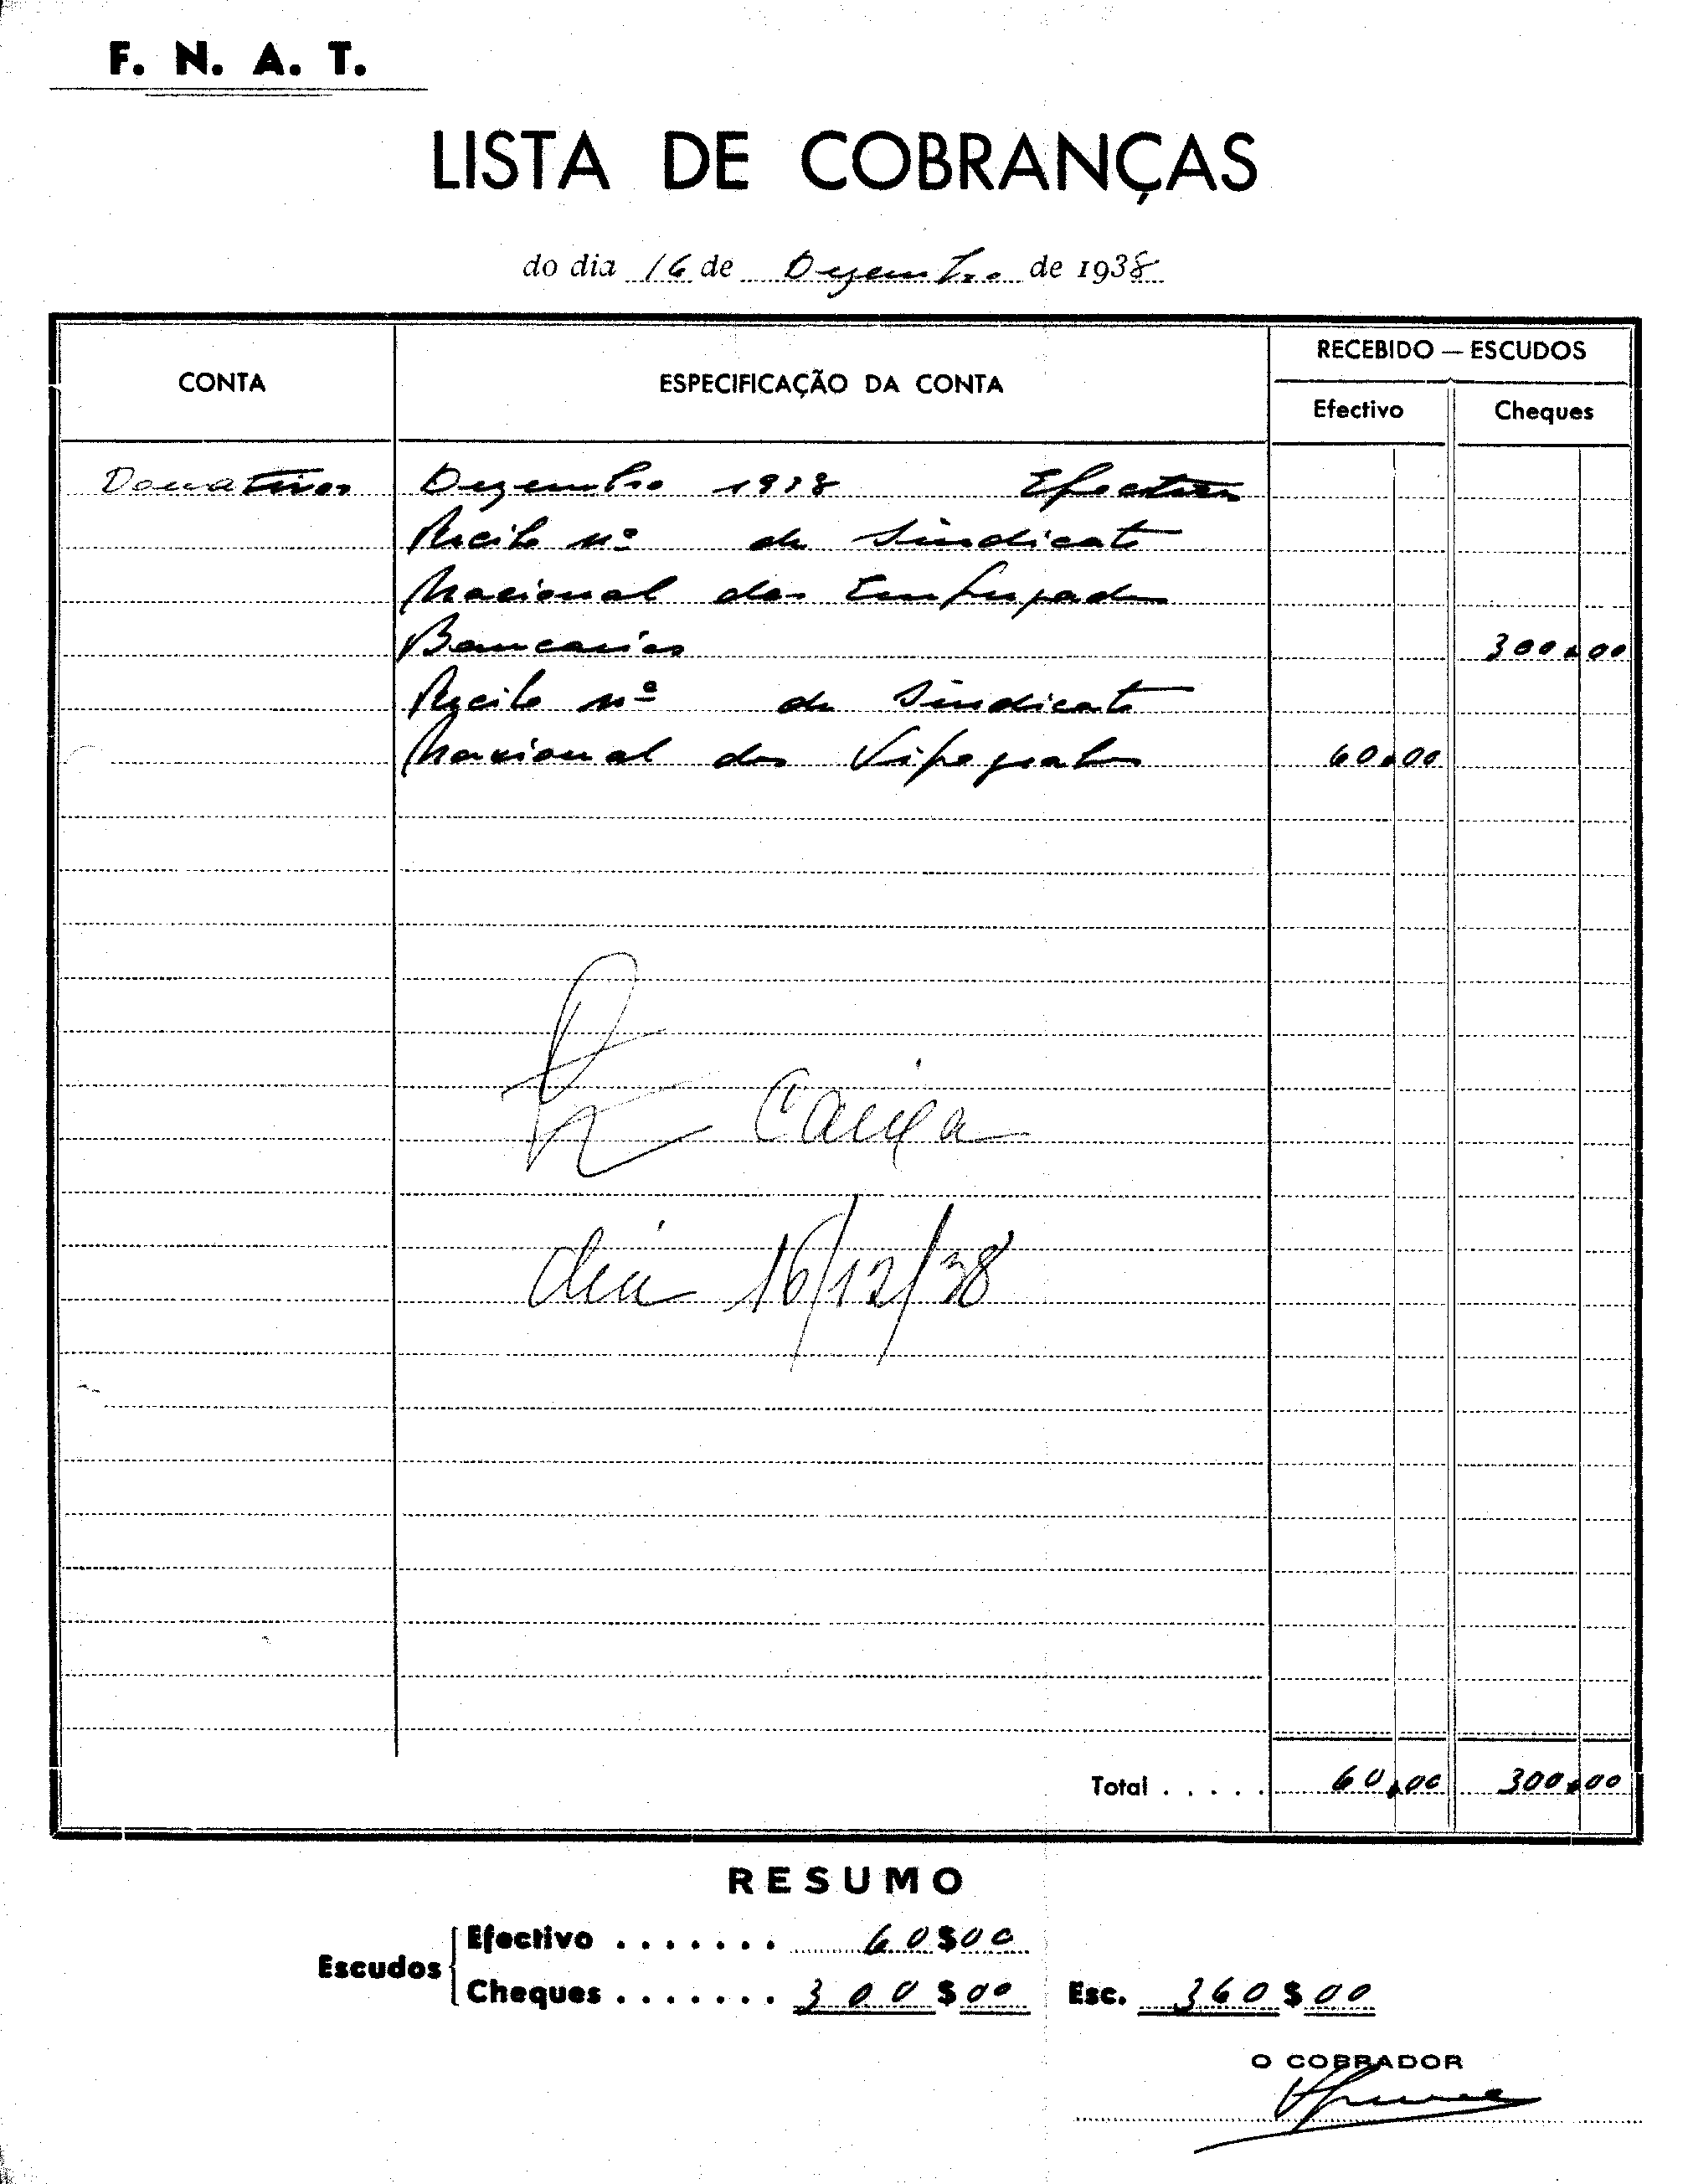 F. N. A. T.
LISTA DE COBRANÇAS
do dia 16 de Dezembro de 1938
CONTA
ESPECIFICAÇÃO DA CONTA
RECEBIDO — ESCUDOS
Efectivo
Cheques
Donativos Dezembro 1938 Efectivos
Recibo nº do Sindicato
Nacional dos Empregados
Bancarios 300$00
Recibo nº do Sindicato
Nacional dos Tipografos 60$00
Caixa
dia 16/12/38
Total . . . . . 60$00 300$00
RESUMO
Escudos
Efectivo . . . . . . . 60$00
Cheques . . . . . . . 300$00 Esc. 360$00
O COBRADOR